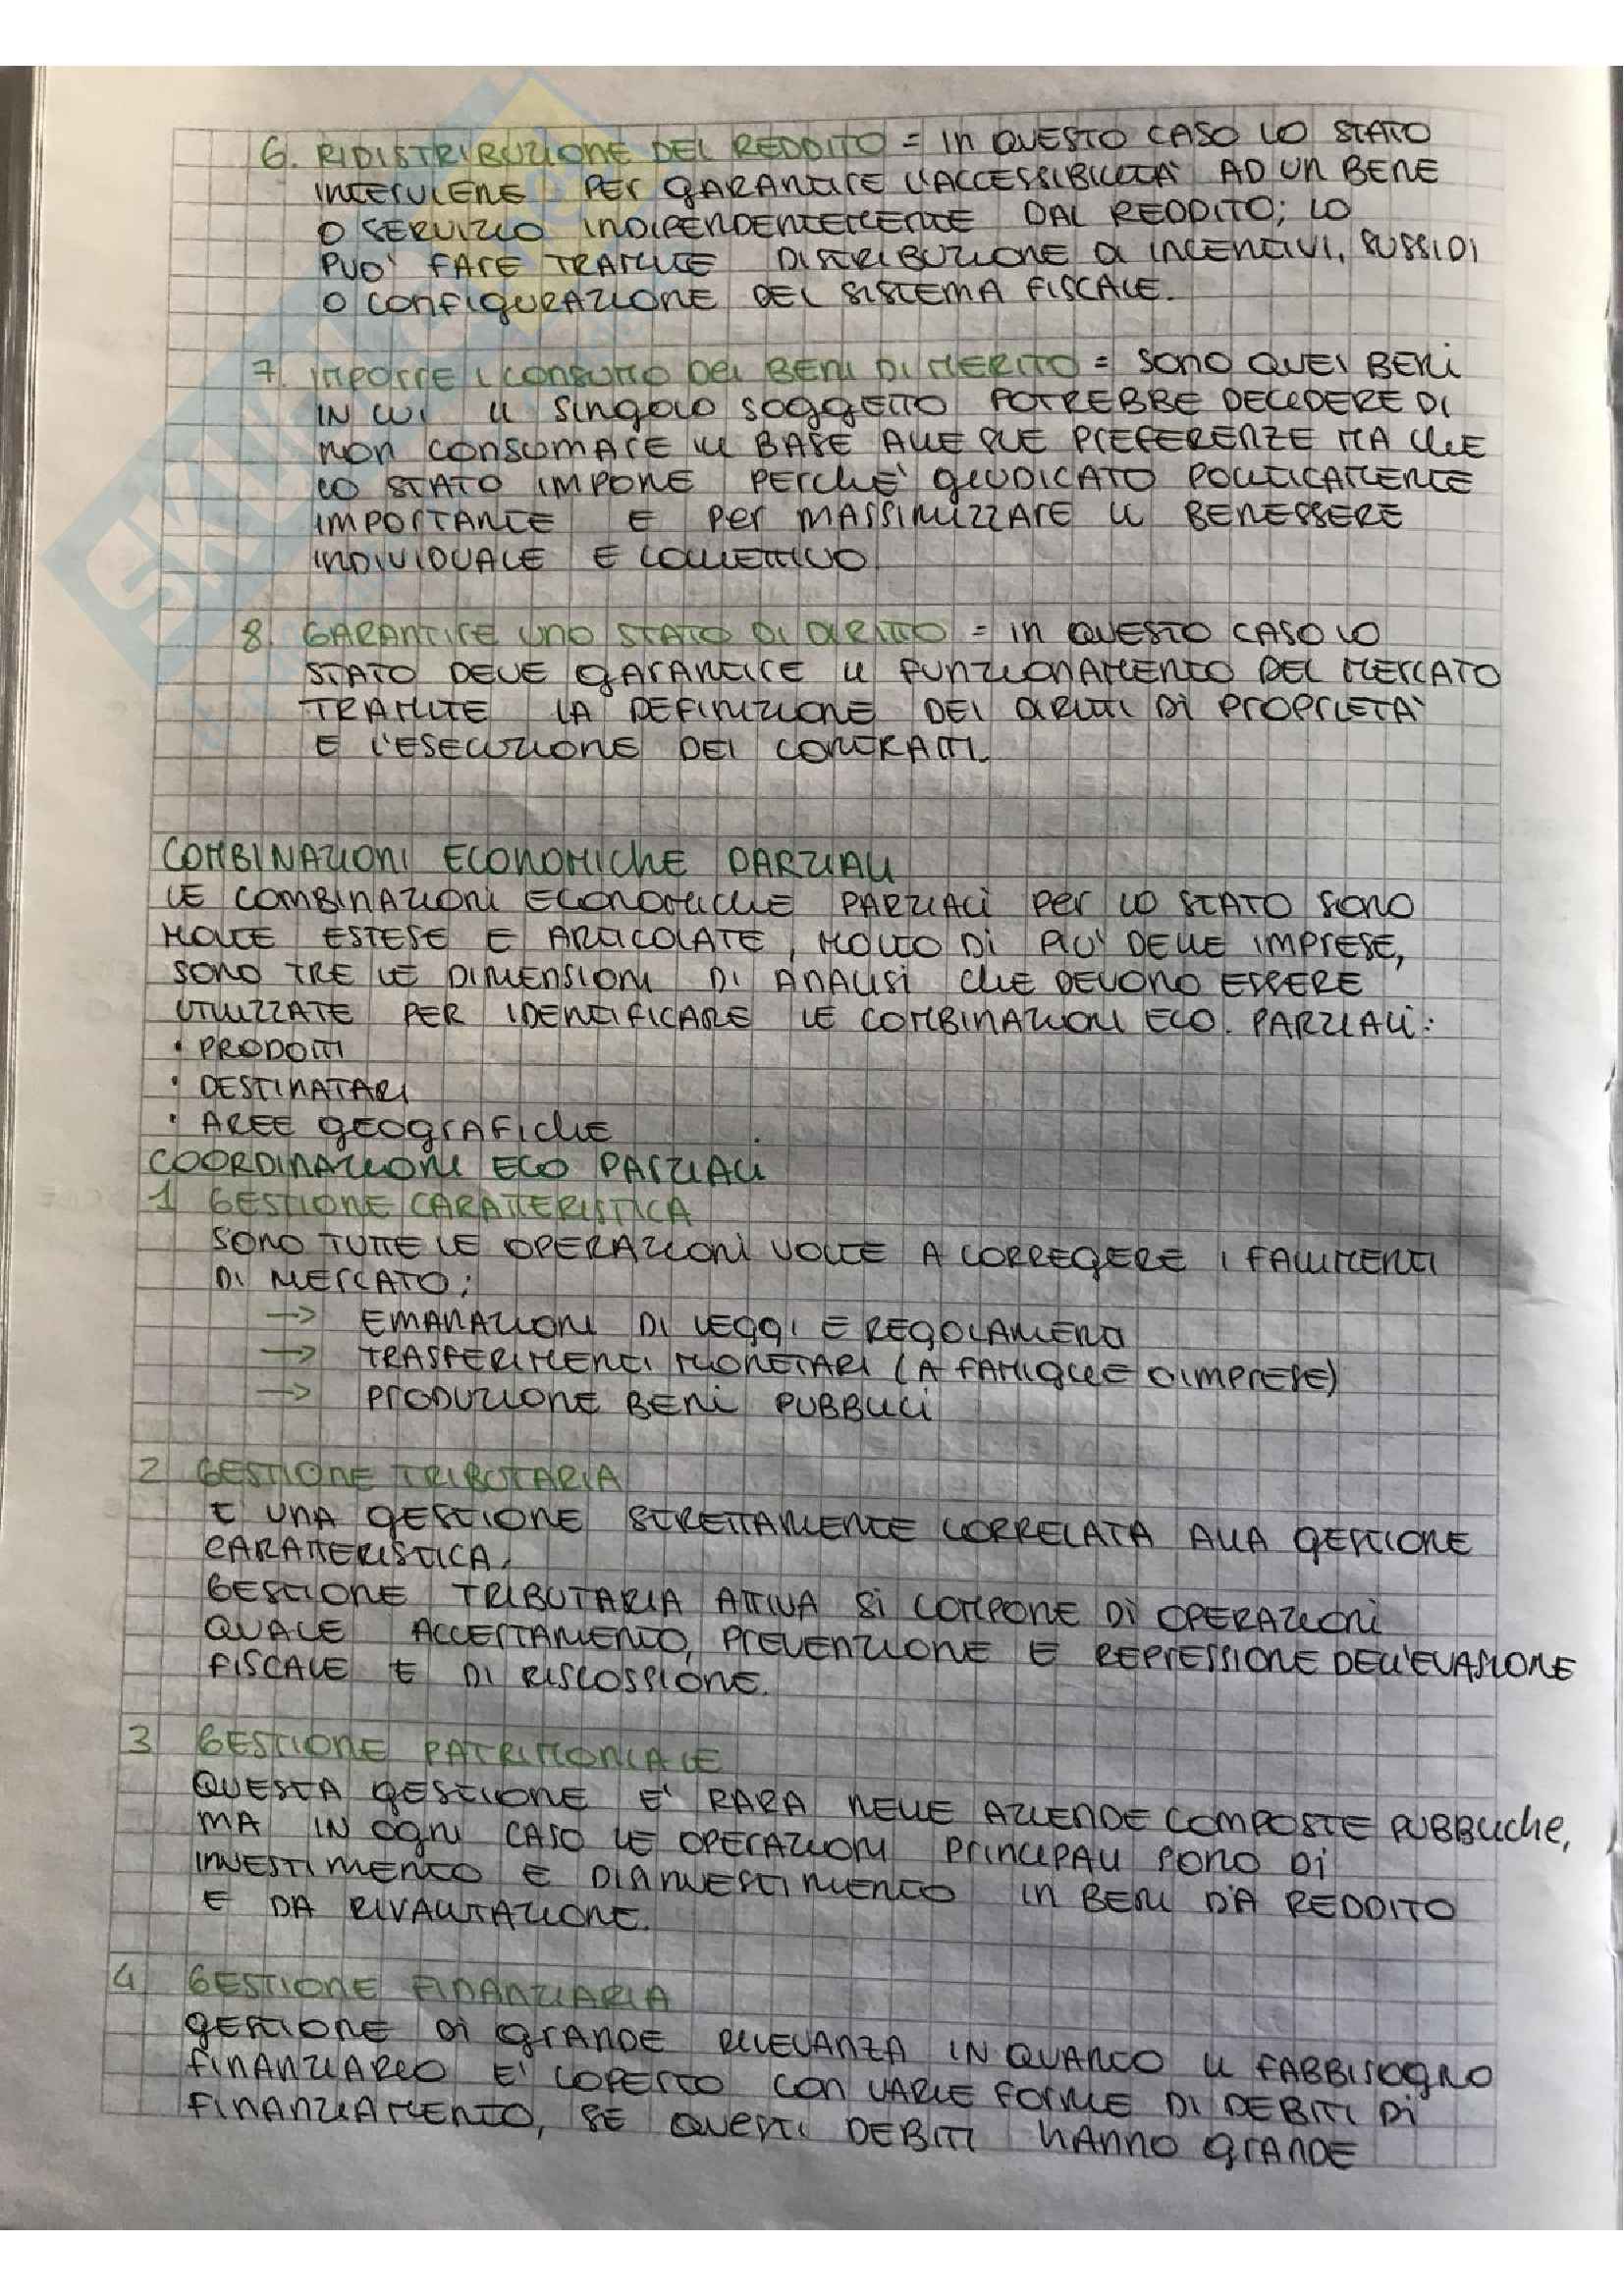 6. RIDISTRIBUZIONE DEL REDDITO = IN QUESTO CASO LO STATO
INTERVIENE PER GARANTIRE L'ACCESSIBILITÀ AD UN BENE
O SERVIZIO INDIPENDENTEMENTE DAL REDDITO; LO
PUO' FARE TRAMITE DISTRIBUZIONE DI INCENTIVI, SUSSIDI
O CONFIGURAZIONE DEL SISTEMA FISCALE.
7. IMPORRE I CONSUMO DEI BENI DI MERITO = SONO QUEI BENI
IN CUI IL SINGOLO SOGGETTO POTREBBE DECIDERE DI
NON CONSUMARE IN BASE ALLE SUE PREFERENZE MA CHE
LO STATO IMPONE PERCHE' GIUDICATO POLITICAMENTE
IMPORTANTE E PER MASSIMIZZARE IL BENESSERE
INDIVIDUALE E COLLETTIVO
8. GARANTIRE UNO STATO DI DIRITTO = IN QUESTO CASO LO
STATO DEVE GARANTIRE IL FUNZIONAMENTO DEL MERCATO
TRAMITE LA DEFINIZIONE DEI DIRITTI DI PROPRIETA'
E L'ESECUZIONE DEI CONTRATTI.
COMBINAZIONI ECONOMICHE PARZIALI
LE COMBINAZIONI ECONOMICHE PARZIALI PER LO STATO SONO
MOLTE ESTESE E ARTICOLATE, MOLTO DI PIU' DELLE IMPRESE,
SONO TRE LE DIMENSIONI DI ANALISI CHE DEVONO ESSERE
UTILIZZATE PER IDENTIFICARE LE COMBINAZIONI ECO. PARZIALI:
• PRODOTTI
• DESTINATARI
• AREE GEOGRAFICHE
COORDINAZIONI ECO PARZIALI
1 GESTIONE CARATTERISTICA
SONO TUTTE LE OPERAZIONI VOLTE A CORREGERE I FALLIMENTI
DI MERCATO;
→ EMANAZIONI DI LEGGI E REGOLAMENTI
→ TRASFERIMENTI MONETARI (A FAMIGLIE O IMPRESE)
→ PRODUZIONE BENI PUBBLICI
2 GESTIONE TRIBUTARIA
E' UNA GESTIONE STRETTAMENTE CORRELATA ALLA GESTIONE
CARATTERISTICA.
GESTIONE TRIBUTARIA ATTIVA SI COMPONE DI OPERAZIONI
QUALE ACCERTAMENTO, PREVENZIONE E REPRESSIONE DELL'EVASIONE
FISCALE E DI RISCOSSIONE.
3 GESTIONE PATRIMONIALE
QUESTA GESTIONE E' RARA NELLE AZIENDE COMPOSTE PUBBLICHE,
MA IN OGNI CASO LE OPERAZIONI PRINCIPALI SONO DI
INVESTIMENTO E DISINVESTIMENTO IN BENI DA REDDITO
E DA RIVALUTAZIONE.
4 GESTIONE FINANZIARIA
GESTIONE DI GRANDE RILEVANZA IN QUANTO IL FABBISOGNO
FINANZIARIO E' COPERTO CON VARIE FORME DI DEBITI DI
FINANZIAMENTO, SE QUESTI DEBITI HANNO GRANDE